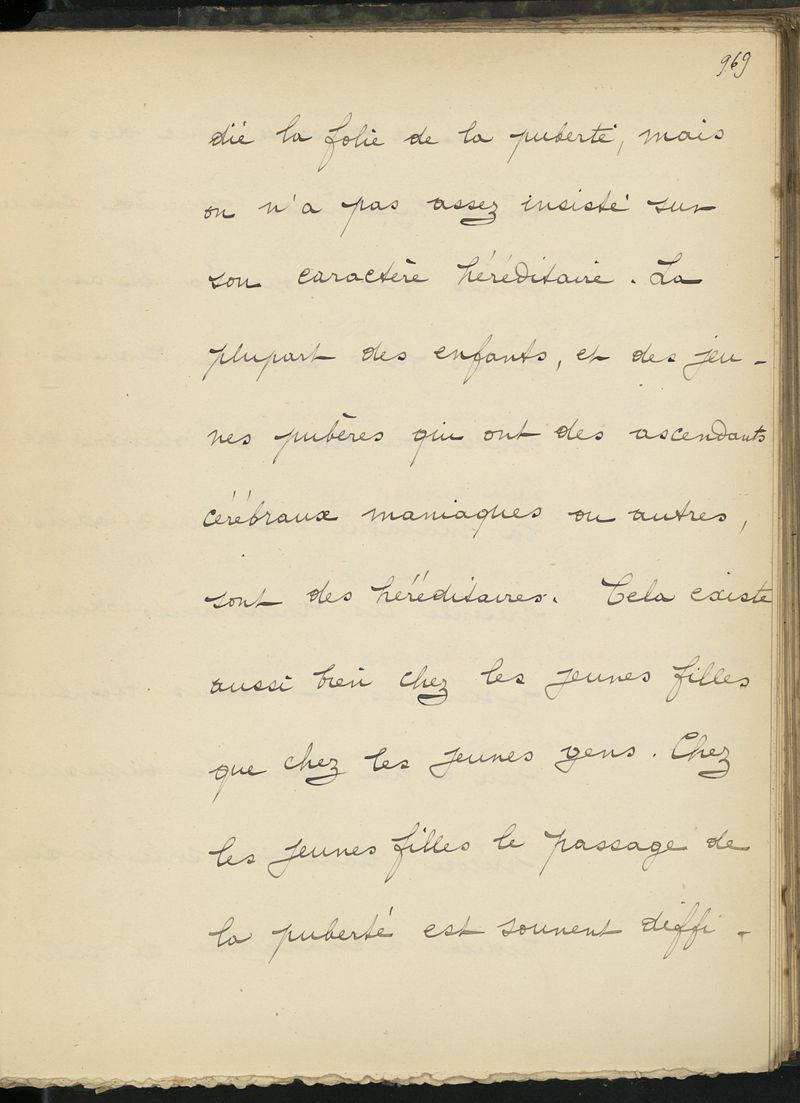 969
dié la folie de la puberté, mais
on n'a pas assez insisté sur
son caractère héréditaire. La
plupart des enfants, et des jeu-
nes pubères qui ont des ascendants
cérébraux maniaques ou autres,
sont des héréditaires. Cela existe
aussi bien chez les jeunes filles
que chez les jeunes gens. Chez
les jeunes filles le passage de
la puberté est souvent diffi-